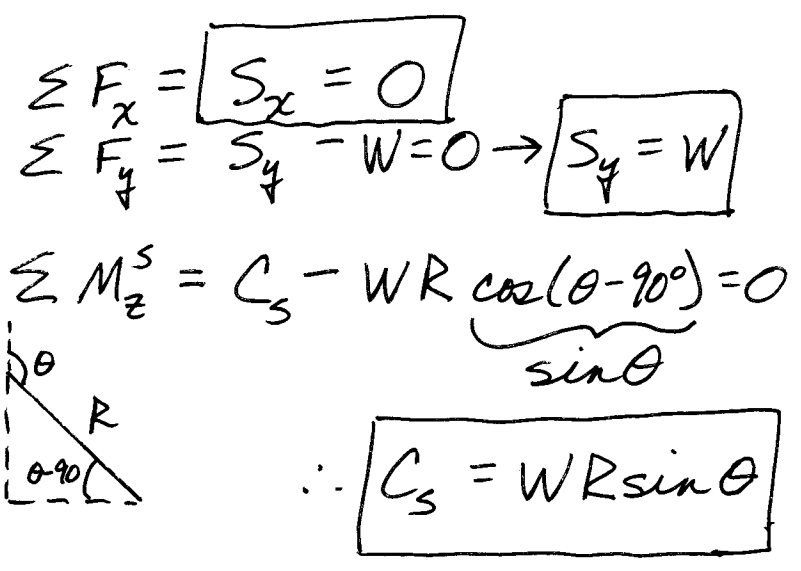 Σ F_x = S_x = 0
Σ F_y = S_y - W = 0 → S_y = W
Σ M_z^S = C_s - W R cos(θ-90°) = 0
sin θ
θ
R
θ-90
∴ C_s = W R sin θ